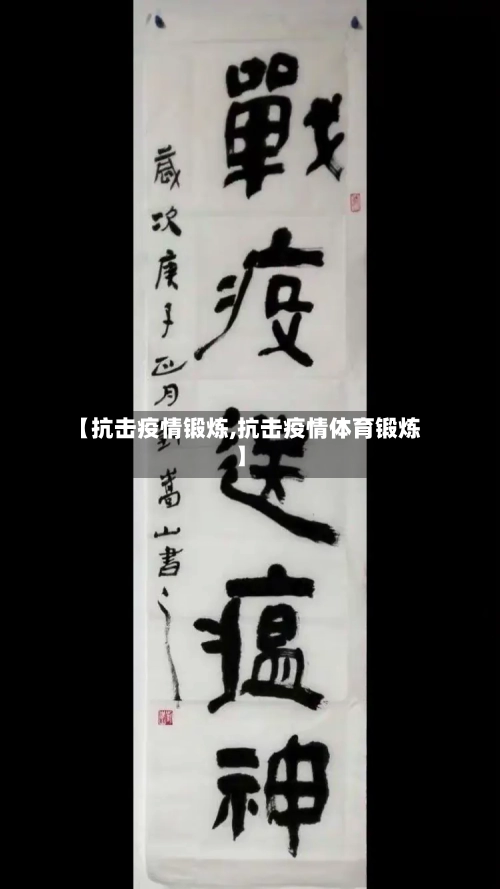 戰疫送瘟神
歲次庚子正月
嵩山書
【抗击疫情锻炼,抗击疫情体育锻炼
】